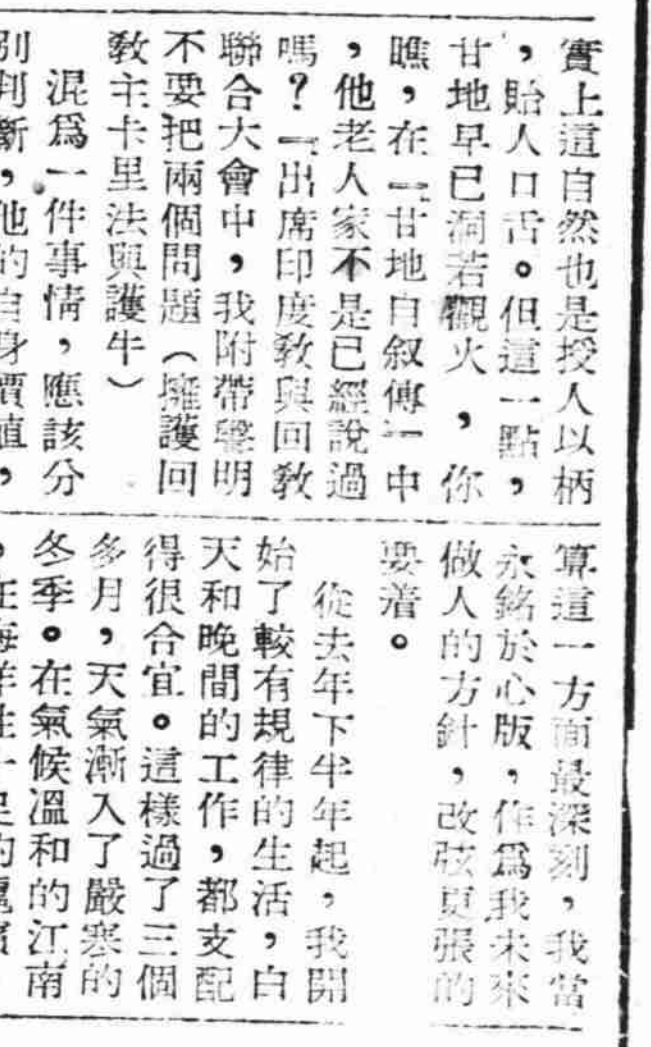 實上這自然也是授人以柄
，貽人口舌。但這一點，
甘地早已洞若觀火，你
瞧，在「甘地自叙傳」中
，他老人家不是已經說過
嗎？「出席印度敎與回敎
聯合大會中，我附帶聲明
不要把兩個問題（擁護回
敎主卡里法與護牛）
混爲一件事情，應該分
別判斷，他的自身價值，
算這一方面最深刻，我當
永銘於心版，作爲我未來
做人的方針，改弦更張的
要着。
從去年下半年起，我開
始了較有規律的生活，白
天和晚間的工作，都支配
得很合宜。這樣過了三個
多月，天氣漸入了嚴寒的
冬季。在氣候溫和的江南
，在海洋性十足的